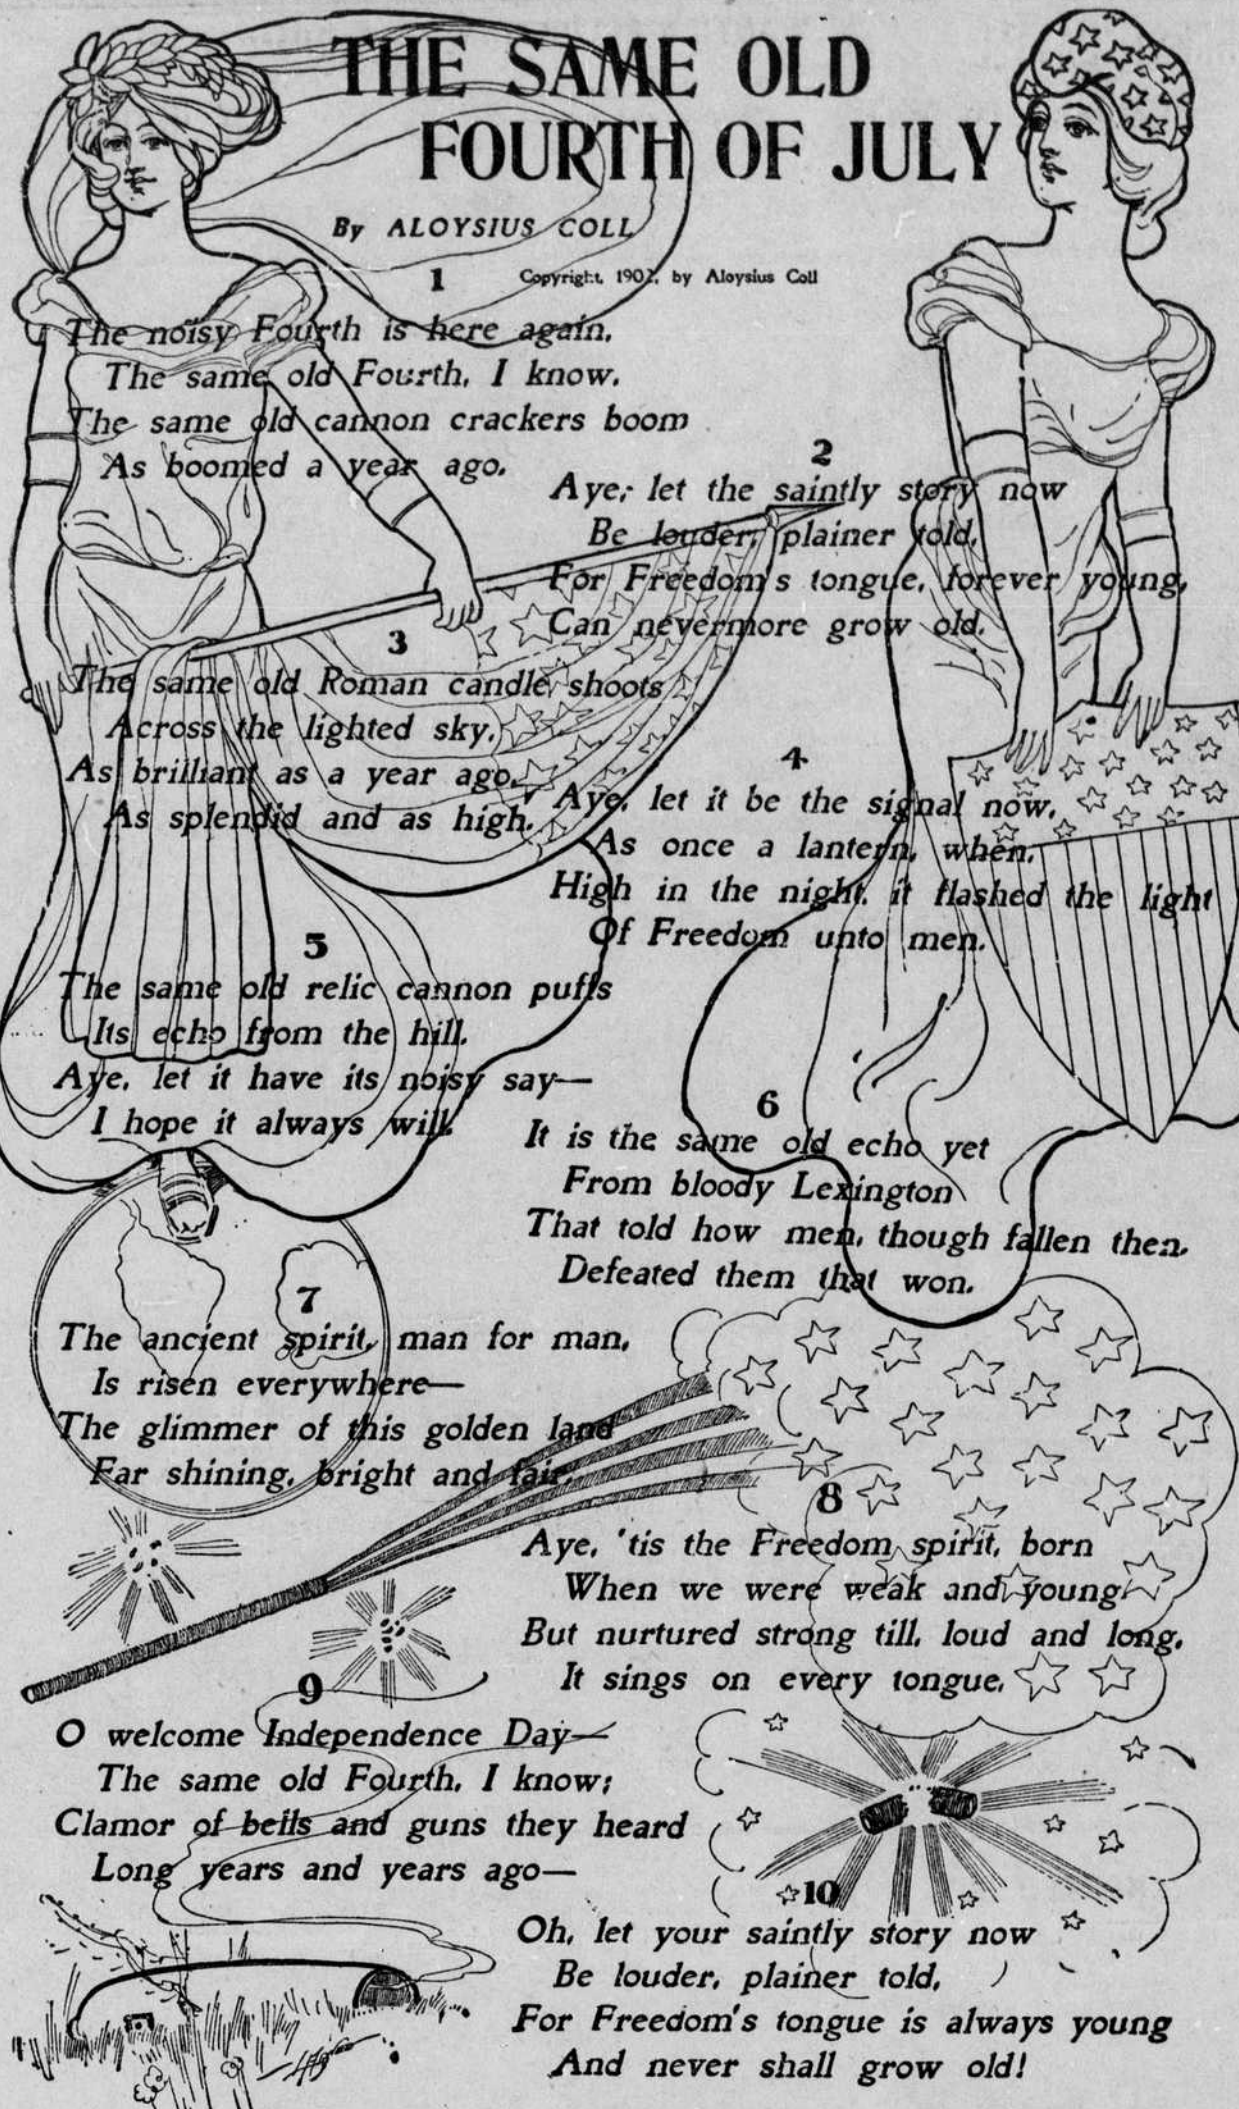 THE SAME OLD
FOURTH OF JULY
By ALOYSIUS COLL
Copyright, 1902, by Aloysius Coll
1
The noisy Fourth is here again,
The same old Fourth, I know,
The same old cannon crackers boom
As boomed a year ago.
2
Aye, let the saintly story now
Be louder, plainer told,
For Freedom's tongue, forever young,
Can nevermore grow old.
3
The same old Roman candle shoots
Across the lighted sky,
As brilliant as a year ago,
As splendid and as high.
4
Aye, let it be the signal now,
As once a lantern, when,
High in the night, it flashed the light
Of Freedom unto men.
5
The same old relic cannon puffs
Its echo from the hill.
Aye, let it have its noisy say—
I hope it always will.
6
It is the same old echo yet
From bloody Lexington
That told how men, though fallen then,
Defeated them that won.
7
The ancient spirit, man for man,
Is risen everywhere—
The glimmer of this golden land
Far shining, bright and fair.
8
Aye, 'tis the Freedom spirit, born
When we were weak and young
But nurtured strong till, loud and long,
It sings on every tongue.
9
O welcome Independence Day—
The same old Fourth, I know;
Clamor of bells and guns they heard
Long years and years ago—
10
Oh, let your saintly story now
Be louder, plainer told,
For Freedom's tongue is always young
And never shall grow old!